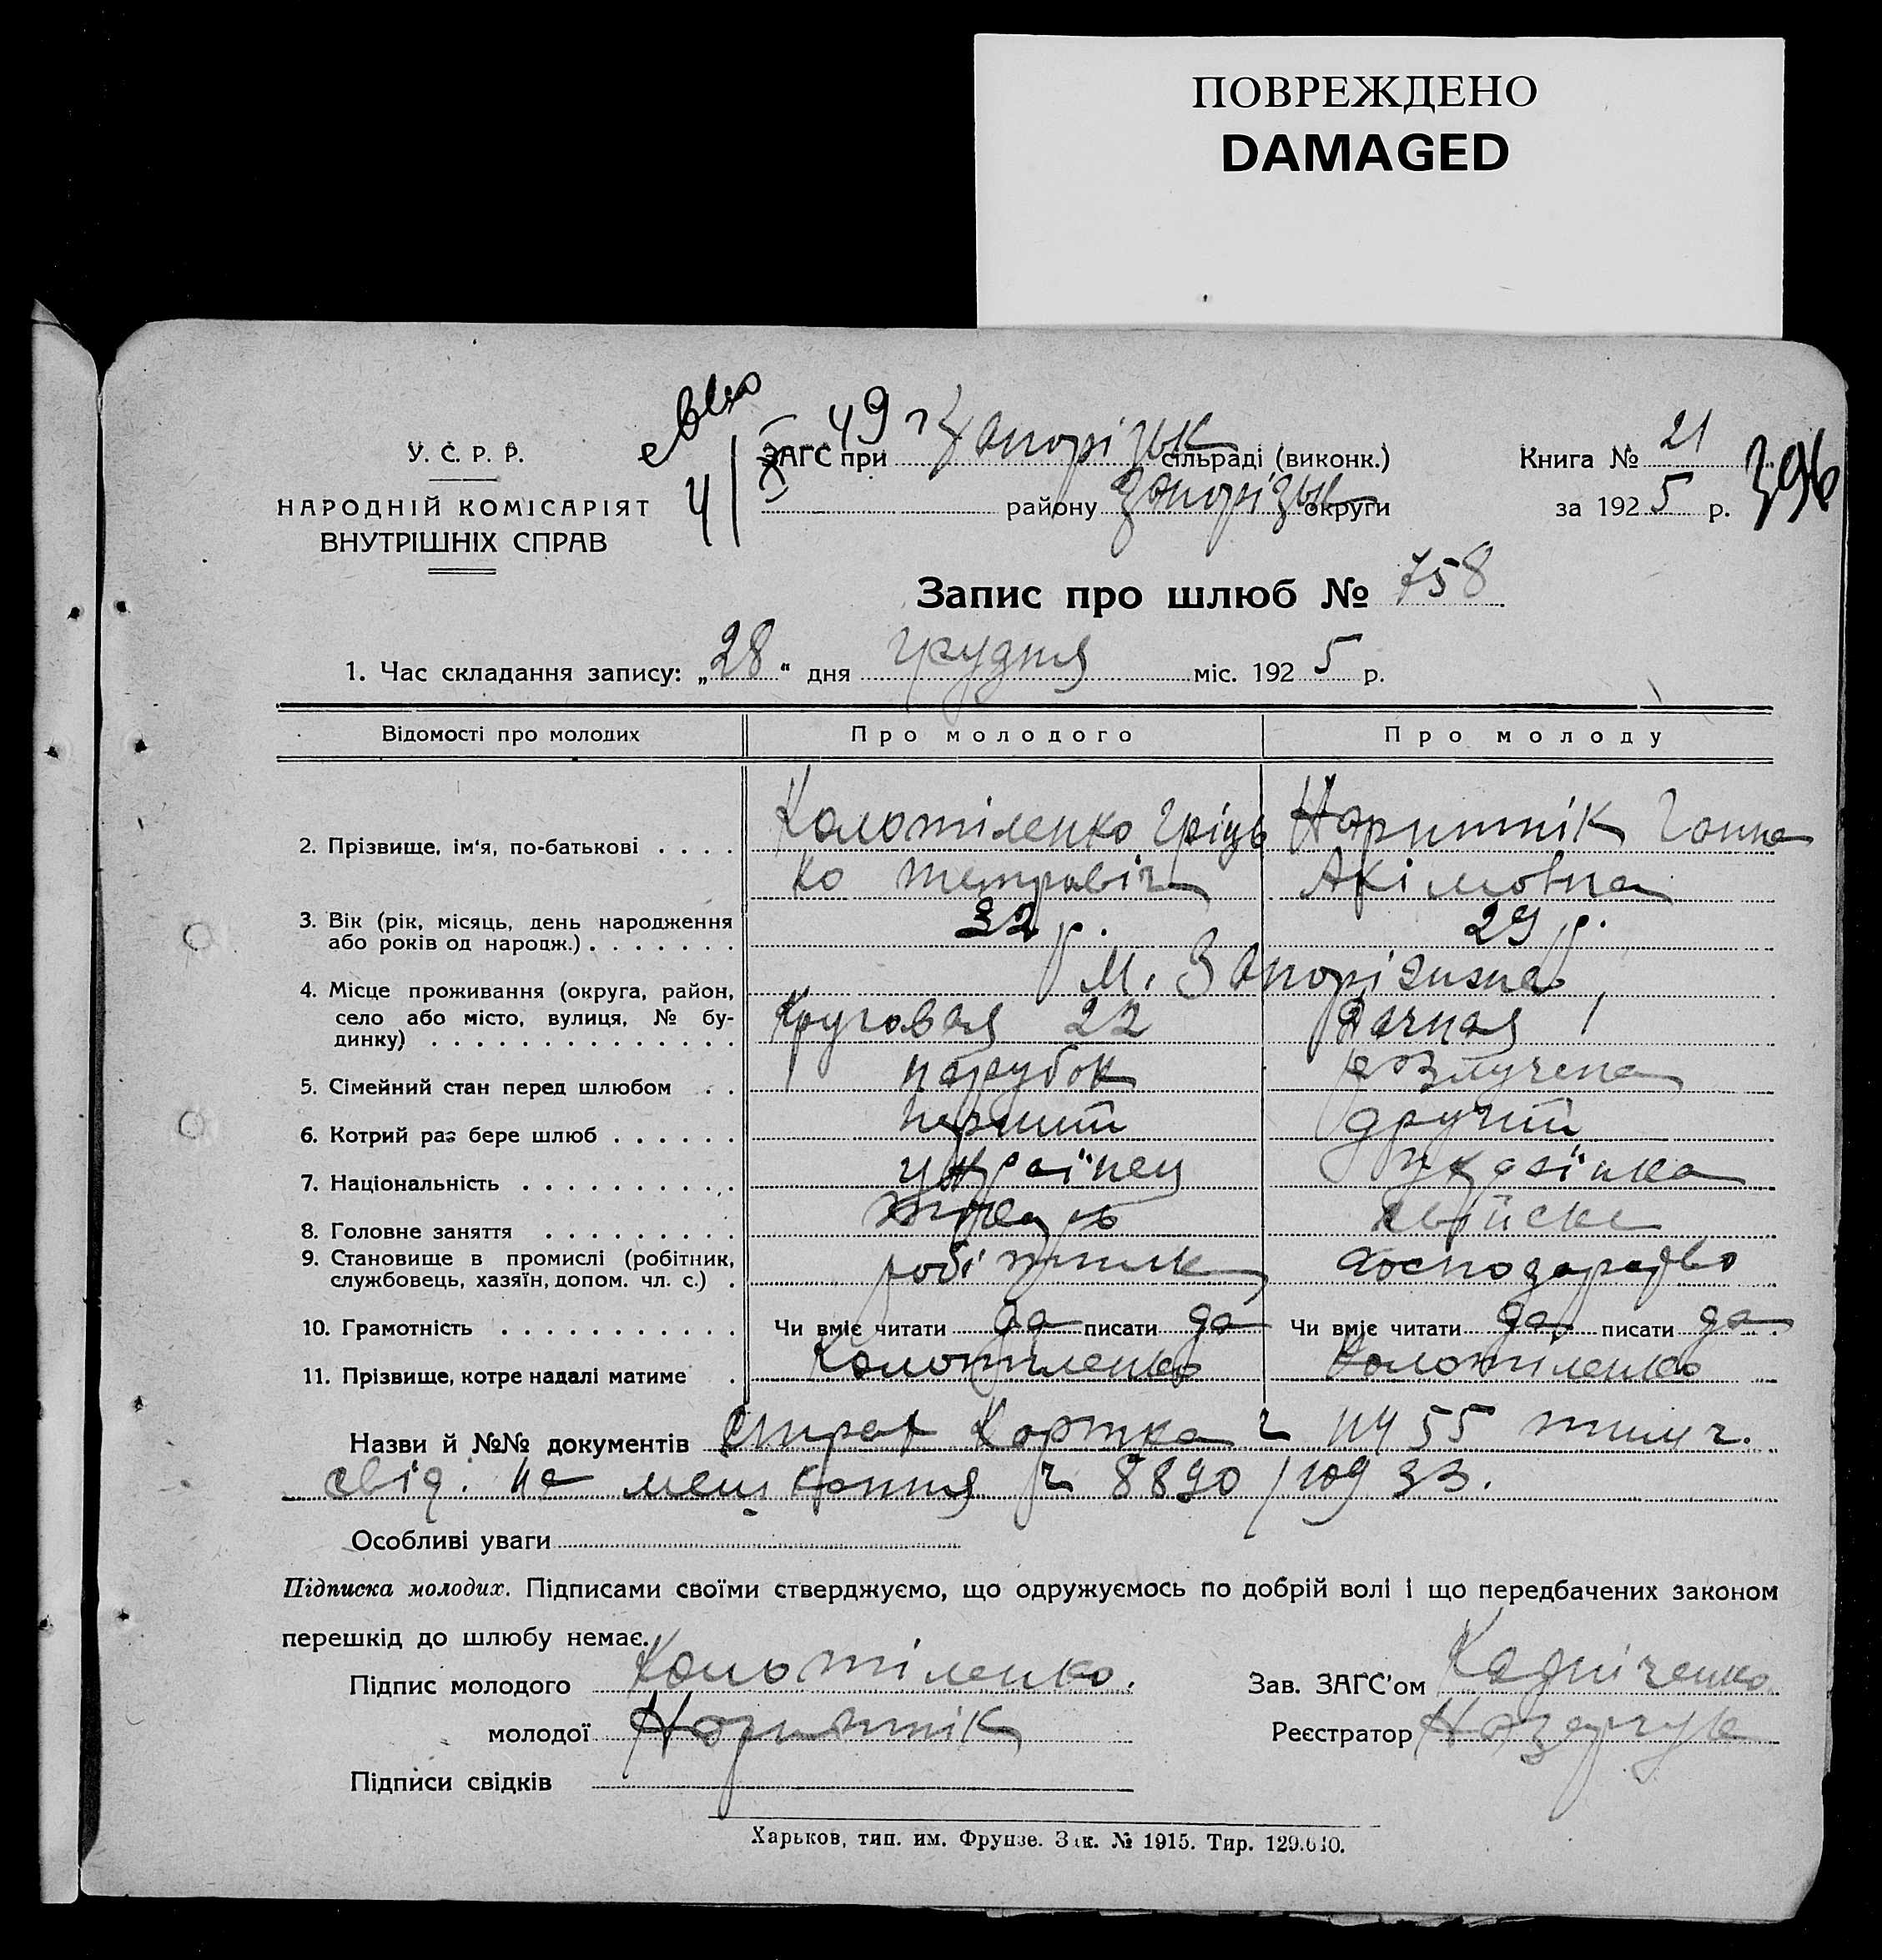 ПОВРЕЖДЕНО
DAMAGED
У. С. Р. Р.
НАРОДНІЙ КОМІСАРІЯТ
ВНУТРІШНІХ СПРАВ
49 г
ЗАГС при Запорізьк сільраді (виконк.)
району Запорізьк округи
Книга № 21
за 1925 р.
396
Запис про шлюб № 758
1. Час складання запису: „28“ дня грудня міс. 1925 р.
Відомості про молодих Про молодого Про молоду
2. Прізвище, ім'я, по-батькові . . . . Колотіленко Гріць Наритнік Ганна
ко Петровіч Акімовна
3. Вік (рік, місяць, день народження
або років од народж.) . . . . . . . 32 р. 29 р.
4. Місце проживання (округа, район, М. Запоріжжа
село або місто, вулиця, № бу-
динку) . . . . . . . . . . . . . . . Круговая 22 Дачная 1
5. Сімейний стан перед шлюбом . . парубок розлучена
6. Котрий раз бере шлюб . . . . . . перший другий
7. Національність . . . . . . . . . . українец українка
8. Головне заняття . . . . . . . . .
9. Становище в промислі (робітник,
службовець, хазяїн, допом. чл. с.) . робітник господарство
10. Грамотність . . . . . . . . . . . Чи вміє читати да писати да Чи вміє читати да писати да
11. Прізвище, котре надалі матиме . Колотіленко Колотіленко
Назви й №№ документів Страх картка ч 1455 тимч.
свід. на мешкання ч 8890
Особливі уваги
Підписка молодих. Підписами своїми стверджуємо, що одружуємось по добрій волі і що передбачених законом
перешкід до шлюбу немає.
Підпис молодого Колотіленко. Зав. ЗАГС'ом
молодої Наритнік Реєстратор
Підписи свідків
Харьков, тип. им. Фрунзе. Зак. № 1915. Тир. 129.610.